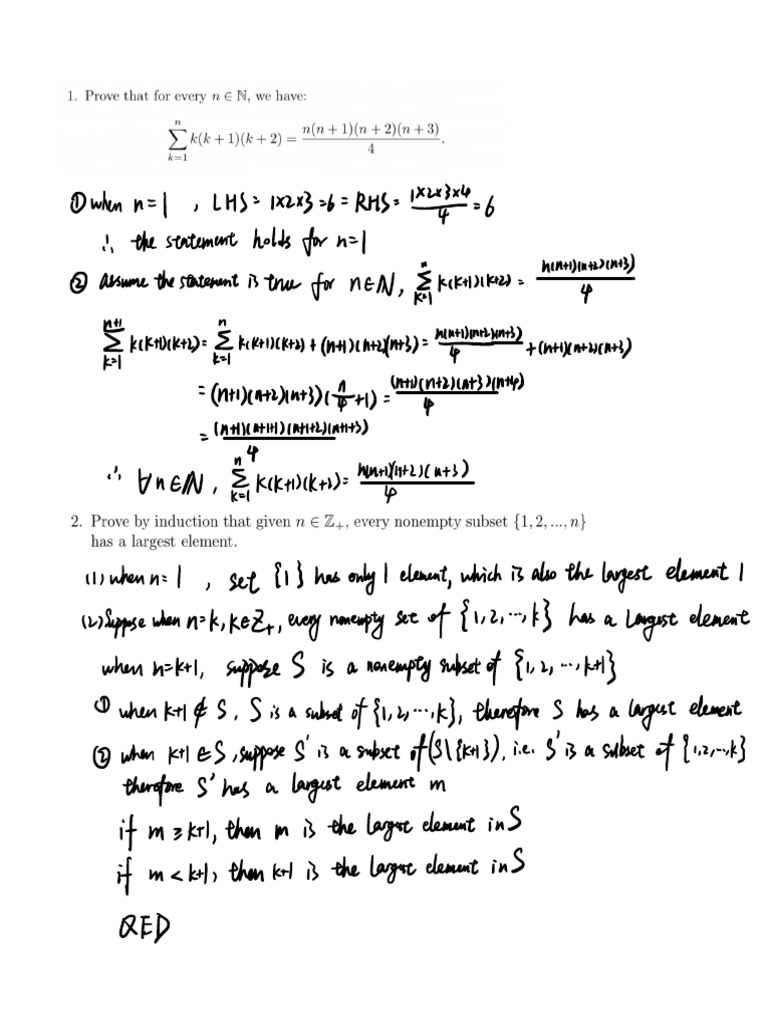 1. Prove that for every n ∈ ℕ, we have:
∑_{k=1}^{n} k(k + 1)(k + 2) = n(n + 1)(n + 2)(n + 3)/4.
① when n=1 , LHS= 1×2×3 =6 = RHS= 1×2×3×4/4 = 6
∴ the statement holds for n=1
② Assume the statement is true for n∈N, ∑_{k=1}^{n} k(k+1)(k+2) = n(n+1)(n+2)(n+3)/4
∑_{k=1}^{n+1} k(k+1)(k+2) = ∑_{k=1}^{n} k(k+1)(k+2) + (n+1)(n+2)(n+3) = n(n+1)(n+2)(n+3)/4 + (n+1)(n+2)(n+3)
= (n+1)(n+2)(n+3)(n/4 +1) = (n+1)(n+2)(n+3)(n+4)/4
= (n+1)(n+1+1)(n+1+2)(n+1+3)/4
∴ ∀n∈N, ∑_{k=1}^{n} k(k+1)(k+2) = n(n+1)(n+2)(n+3)/4
2. Prove by induction that given n ∈ ℤ₊, every nonempty subset {1, 2, ..., n}
has a largest element.
(1) when n=1 , set {1} has only 1 element, which is also the largest element 1
(2) Suppose when n=k, k∈Z₊, every nonempty set of {1,2,…,k} has a largest element
when n=k+1, suppose S is a nonempty subset of {1,2,…,k+1}
① when k+1 ∉ S, S is a subset of {1,2,…,k}, therefore S has a largest element
② when k+1 ∈ S, suppose S' is a subset of (S\{k+1}), i.e. S' is a subset of {1,2,…,k}
therefore S' has a largest element m
if m ≥ k+1, then m is the largest element in S
if m < k+1, then k+1 is the largest element in S
QED